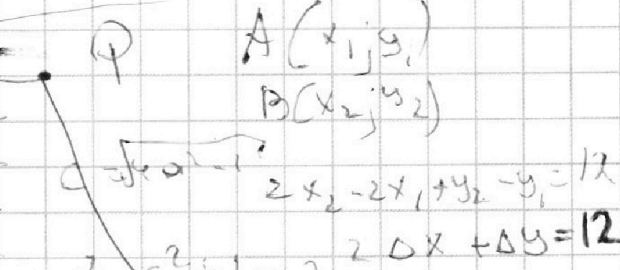 Q
A(x₁; y₁)
B(x₂; y₂)
2x₂-2x₁+y₂-y₁=12
2Δx+Δy=12